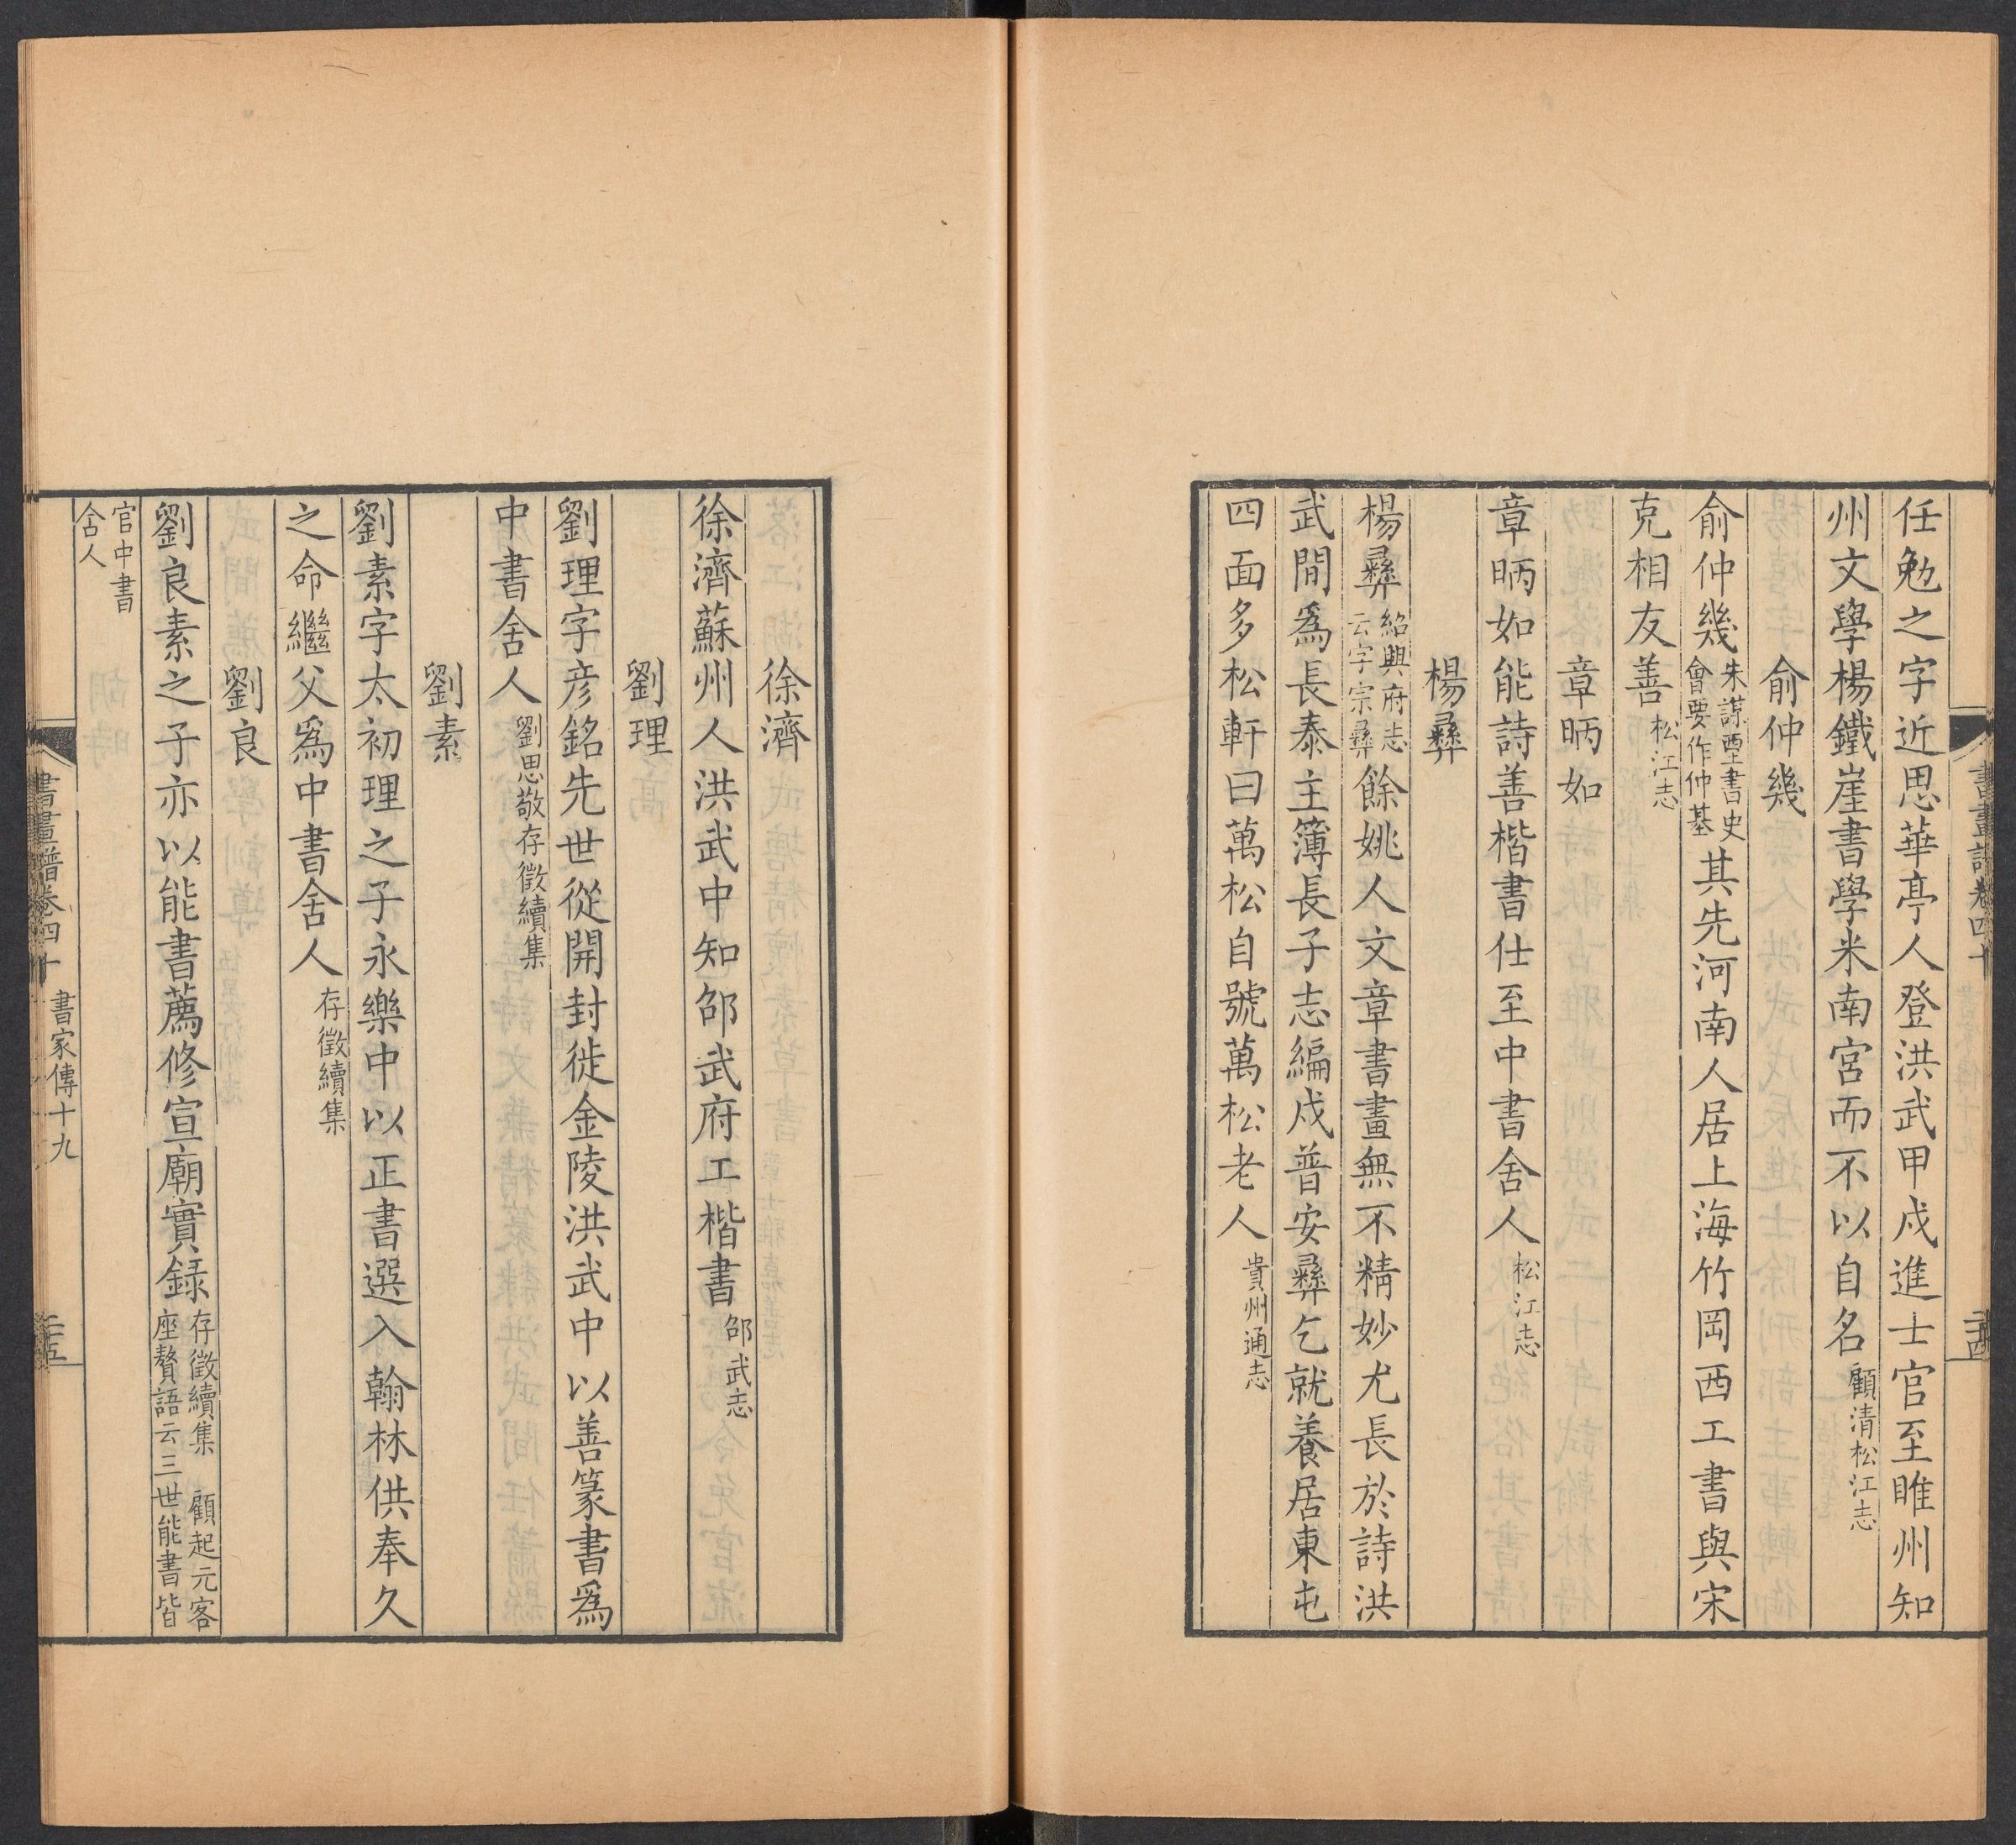 任勉之字近思華亭人登洪武甲戌進士官至睢州知
州文學楊鐵崖書學米南宮而不以自名顧清松江志
俞仲幾
俞仲幾朱謀垔書史會要作仲基其先河南人居上海竹岡西工書與宋
克相友善松江志
章昞如
章昞如能詩善楷書仕至中書舍人松江志
楊彝
楊彝紹興府志云字宗彝餘姚人文章書畫無不精妙尤長於詩洪
武間爲長泰主簿長子志編戍普安彝乞就養居東屯
四面多松軒曰萬松自號萬松老人貴州通志
書畫譜卷四十
二十四
徐濟
徐濟蘇州人洪武中知邵武府工楷書邵武志
劉理
劉理字彦銘先世從開封徙金陵洪武中以善篆書爲
中書舍人劉思敬存徵續集
劉素
劉素字太初理之子永樂中以正書選入翰林供奉久
之命繼父爲中書舍人存徵續集
劉良
劉良素之子亦以能書薦修宣廟實録存徵續集 顧起元客座贅語云三世能書皆
官中書舍人
書畫譜卷四十 書家傳十九
二十五